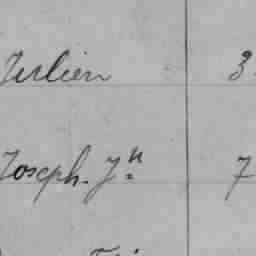 Julien 3
Joseph. Jn 7